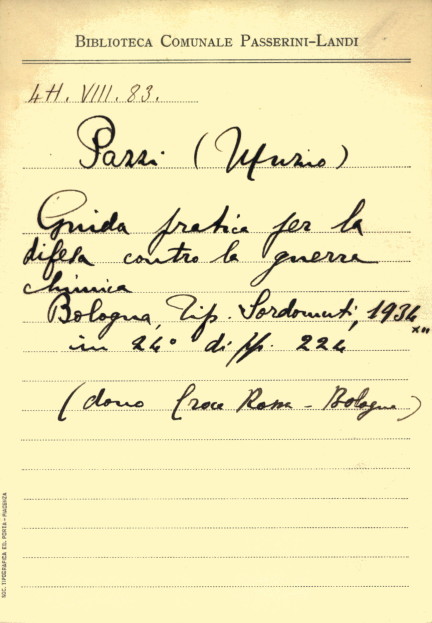 BIBLIOTECA COMUNALE PASSERINI-LANDI
4H. VIII. 83.
Pazzi (Muzio)
Guida pratica per la
difesa contro la guerra
chimica
Bologna, Tip. Sordomuti, 1934
in 24° di pp. 224
(dono Croce Rossa - Bologna)
SOC. TIPOGRAFICA ED. PONTA - PIACENZA